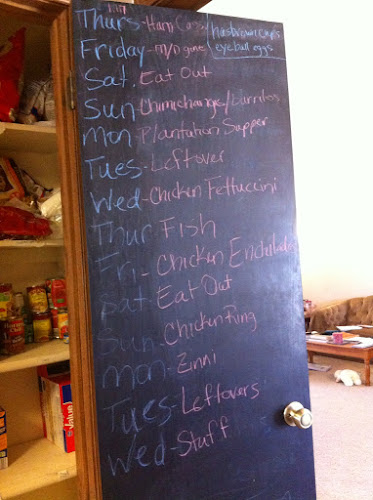 Thurs - Ham Cass / hashbrown cups
Friday - eyeball eggs
Sat. Eat Out
Sun Chimichanga/burritos
Mon - Plantation Supper
Tues - Leftover
Wed - Chicken Fettuccini
Thur. Fish
Fri - Chicken Enchiladas
Sat. Eat Out
Sun. Chicken Ring
Mon - Zinni
Tues - Leftovers
Wed - Stuff